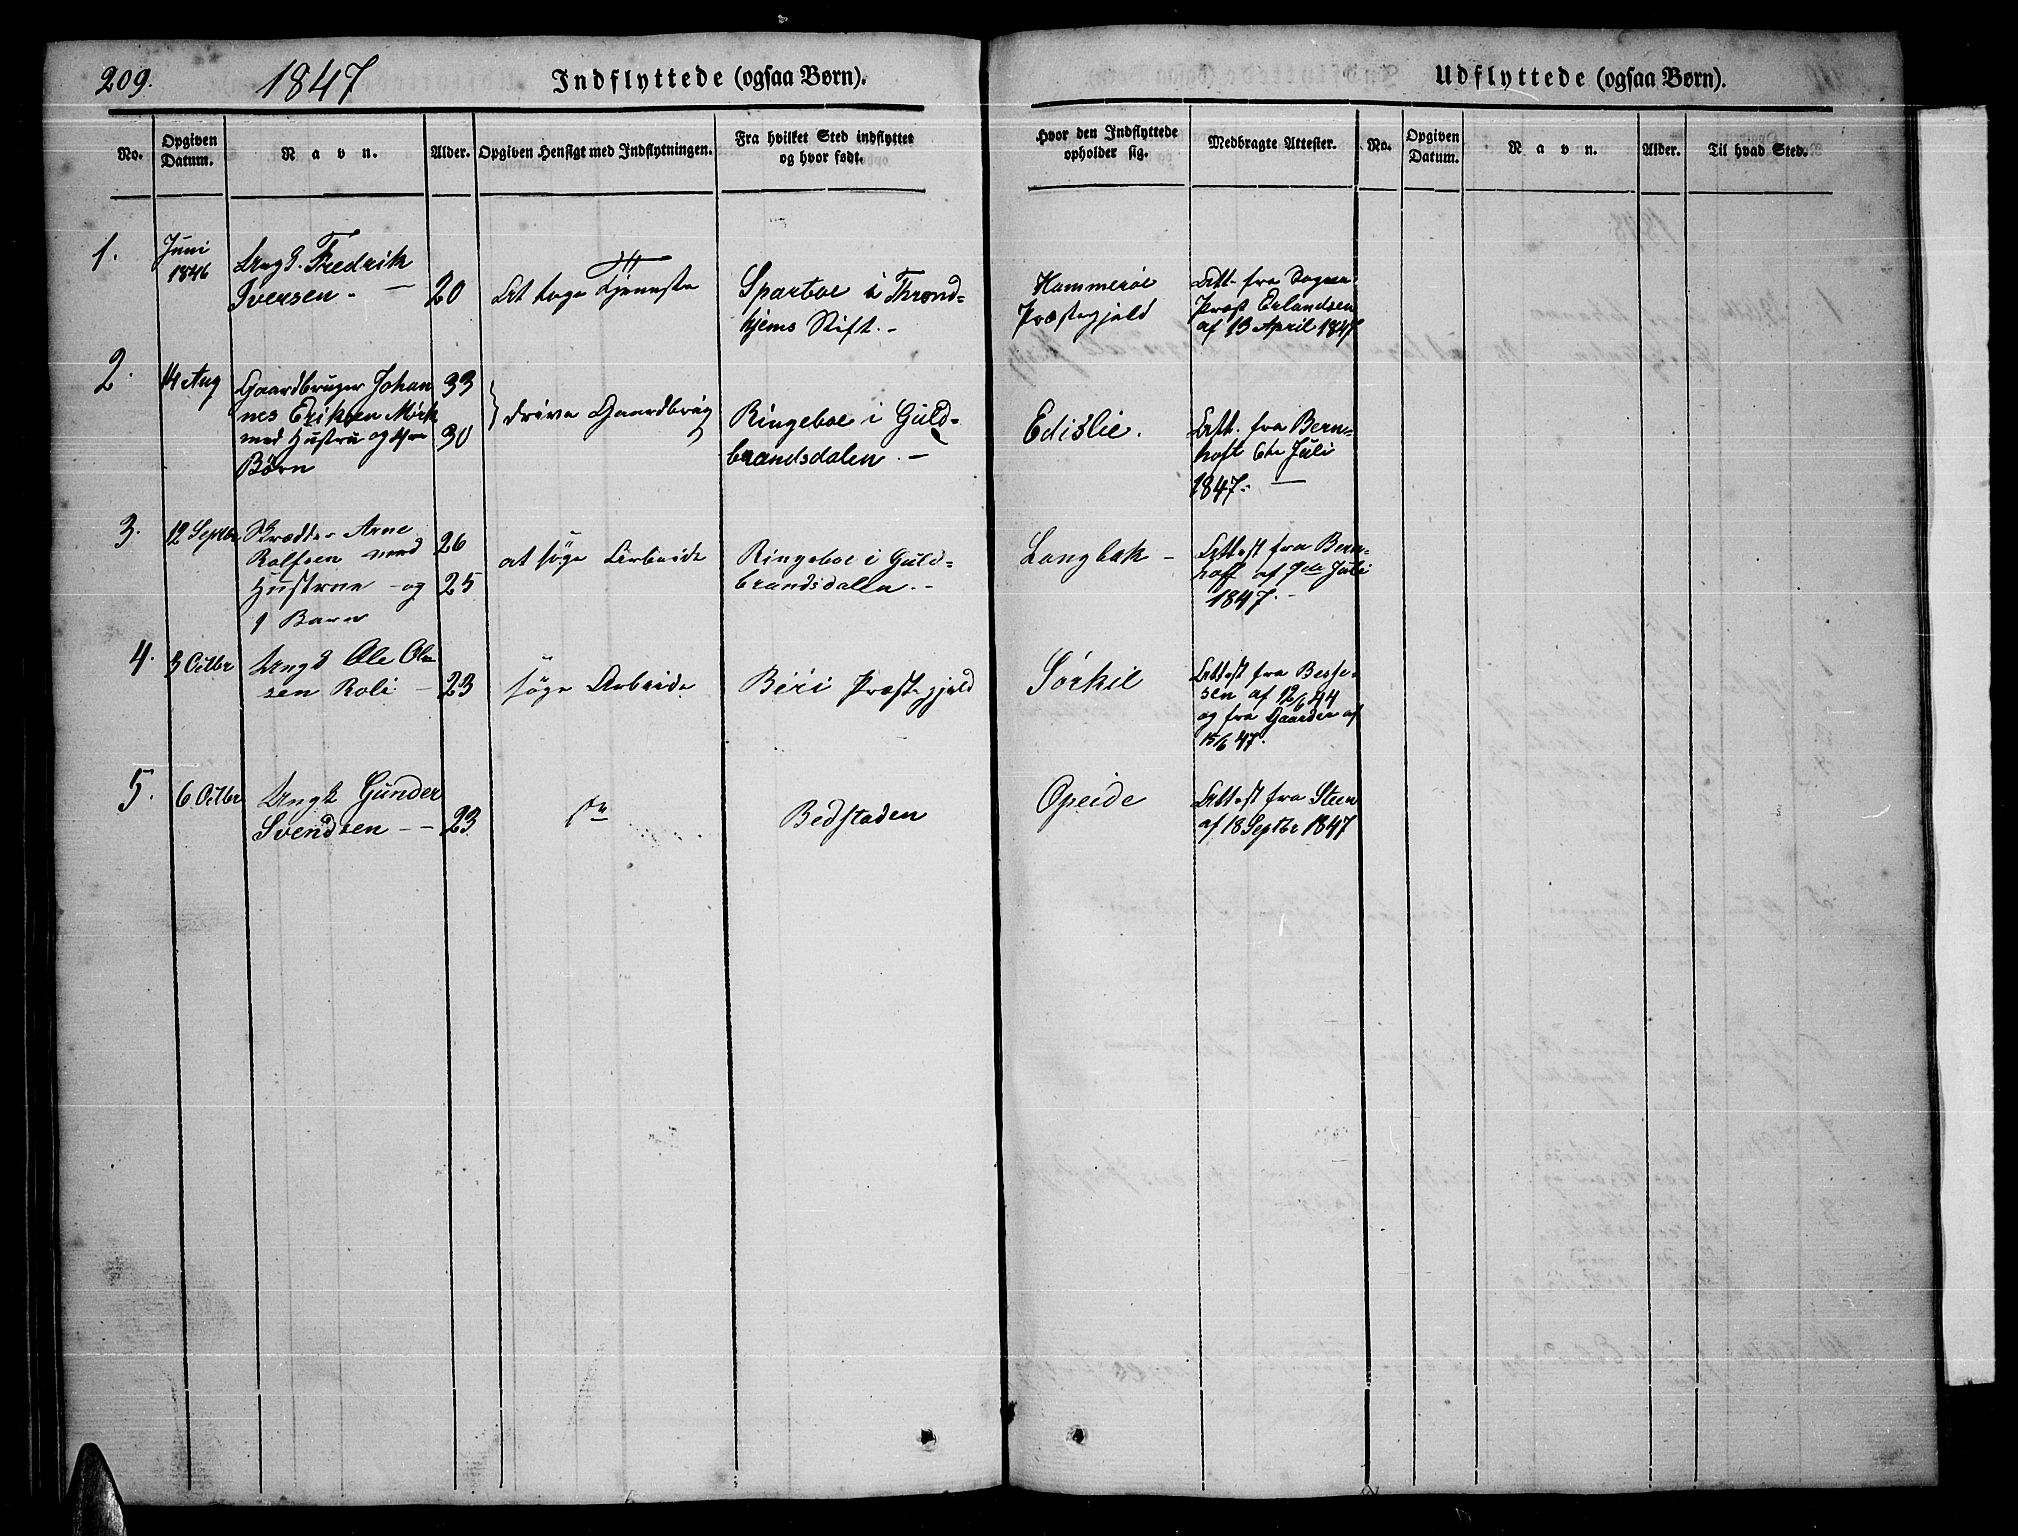 209.
1847
Indflyttede (ogsaa Børn).
Udflyttede (ogsaa Børn).
No.
Opgiven
Datum.
Navn.
Alder.
Opgiven Hensigt med Indflytningen.
Fra hvilket Sted indflyttet
og hvor født.
Hvor den Indflyttede
opholder sig.
Medbragte Attester.
No.
Opgiven
Datum.
Navn.
Alder.
Til hvad Sted.
1.
Juni
1846
Ungk. Fredrik
Iversen. —
20
At tage Tjeneste
Sparboe i Thrond-
hjems Stift. -
Hammerøe
Præstegjeld
Att. fra Sogne
Præst Erlandsen
af 13 April 1847
2.
14 Aug
Gaardbruger Johan
nes Eriksen Mørk
med Hustru og 4
Børn
33
30
drive Gaardbrug
Ringeboe i Guld-
brandsdalen. -
Edislie.
Att. fra Bern-
hoft 6te Juli
1847. —
3.
12 Septbr
Skrædder Arne
Rolfsen med
Hustrue - og
1 Barn
26
25
at søge Arbeide
Ringeboe i Guld-
brandsdalen. -
Langbak -
Attest fra Bern-
hoff af 7de Juli
1847. -
4.
3 Octbr
Ungk Ole Ol-
sen Roli -
23
søge Arbeide
Biri Præstegjeld
Sørkil
Attest fra Besse-
sen af 12/6 44
og fra Gaarder af
15/6 47.
5.
6 Octbr
Ungk Gunder
Svendsen - -
23
Bedstaden
Opeide
Attest fra Steen
af 18 Septbr 1847